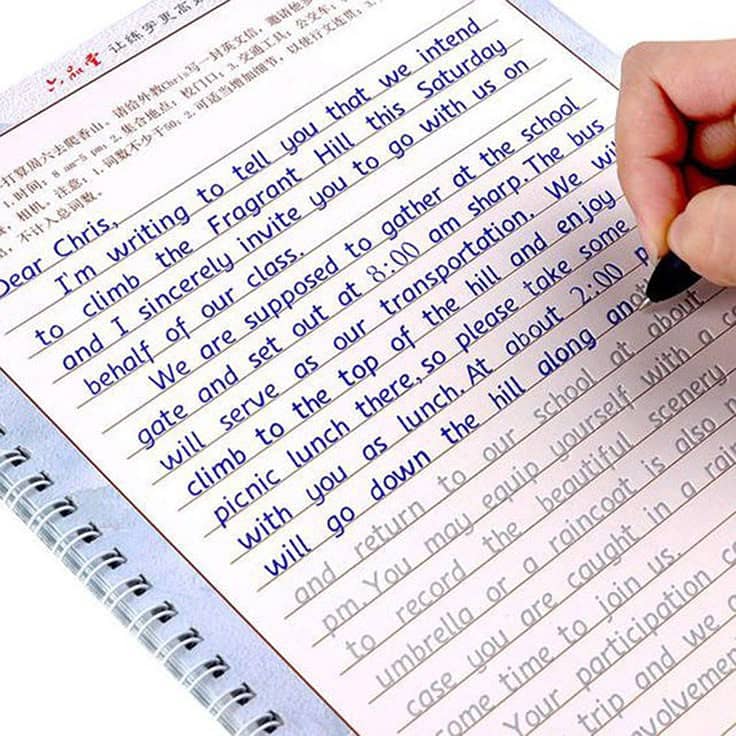 六品堂 让练字更高
打算周六去爬香山,请给外教Chris写一封英文信,邀请他
1.时间:8 am-5 pm;2.集合地点:校门口;3.交通工具:公交车;
相机。注意:1.词数不少于50;2.可适当增加细节,以使行文连贯;3.
不计入总词数。
Dear Chris,
I'm writing to tell you that we intend
to climb the Fragrant Hill this Saturday
and I sincerely invite you to go with us on
behalf of our class.
We are supposed to gather at the school
gate and set out at 8:00 am sharp.The bus
will serve as our transportation. We
climb to the top of the hill and enjoy
picnic lunch there,so please take some
with you as lunch.At about 2:00
will go down the hill along and
and return to our school at about
pm.You may equip yourself with a
to record the beautiful scenery
umbrella or a raincoat is also
case you are caught in a
some time to join us.
Your participation
trip and we